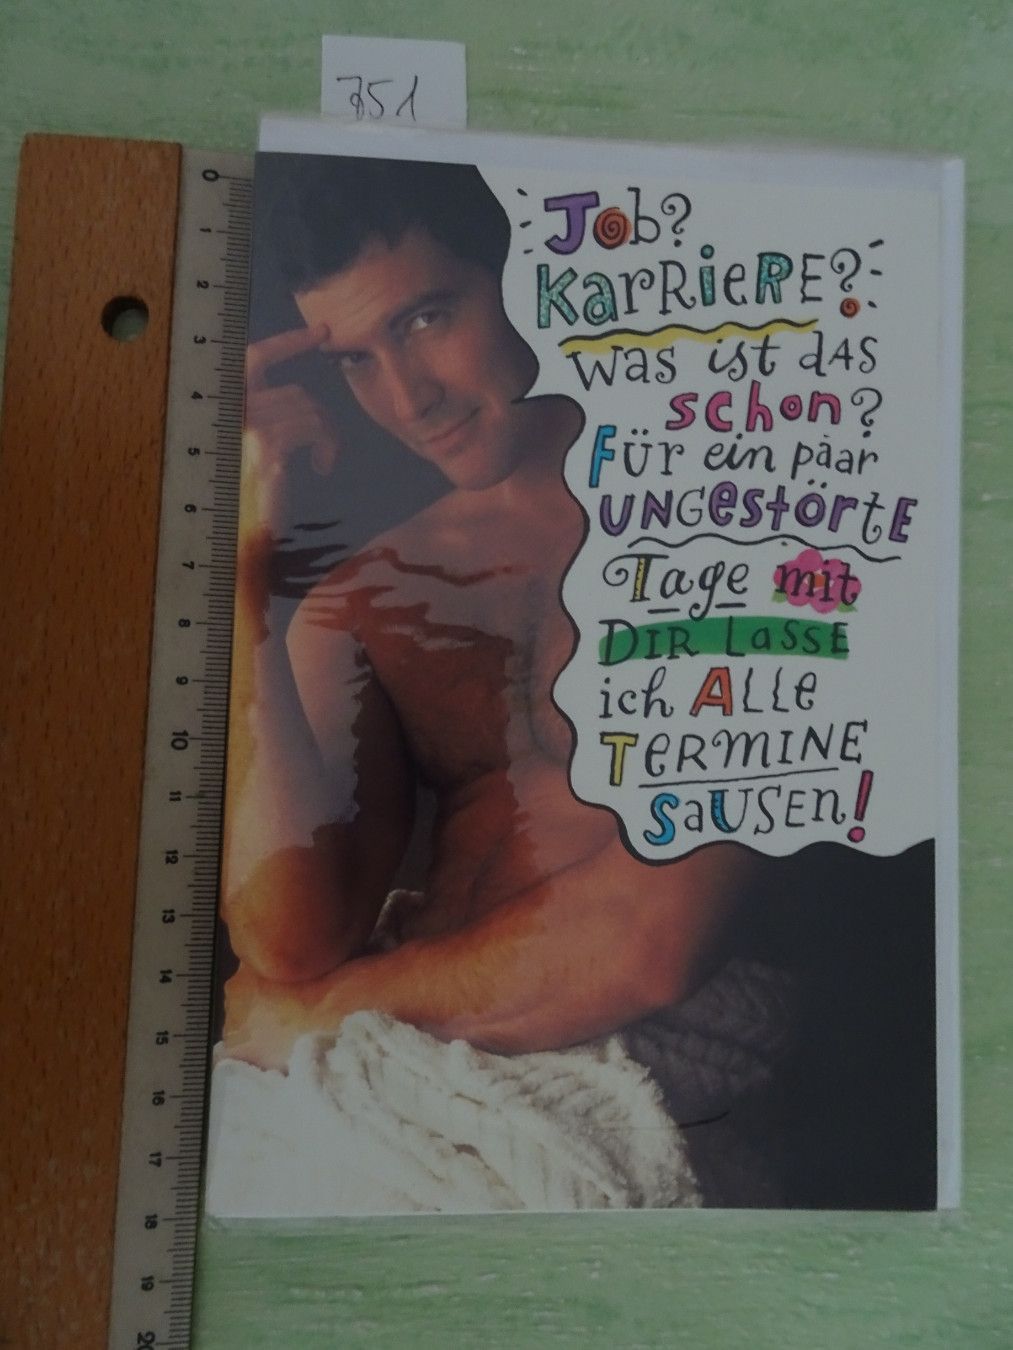 751
Job?
KaRRieRE?
was ist dAS
schon?
FÜr ein paar
UNGestörtE
Tage mit
DIR LaSSE
ich ALLe
TeRMINE
SaUSEn!
0
1
2
3
4
5
6
7
8
9
10
11
12
13
14
15
16
17
18
19